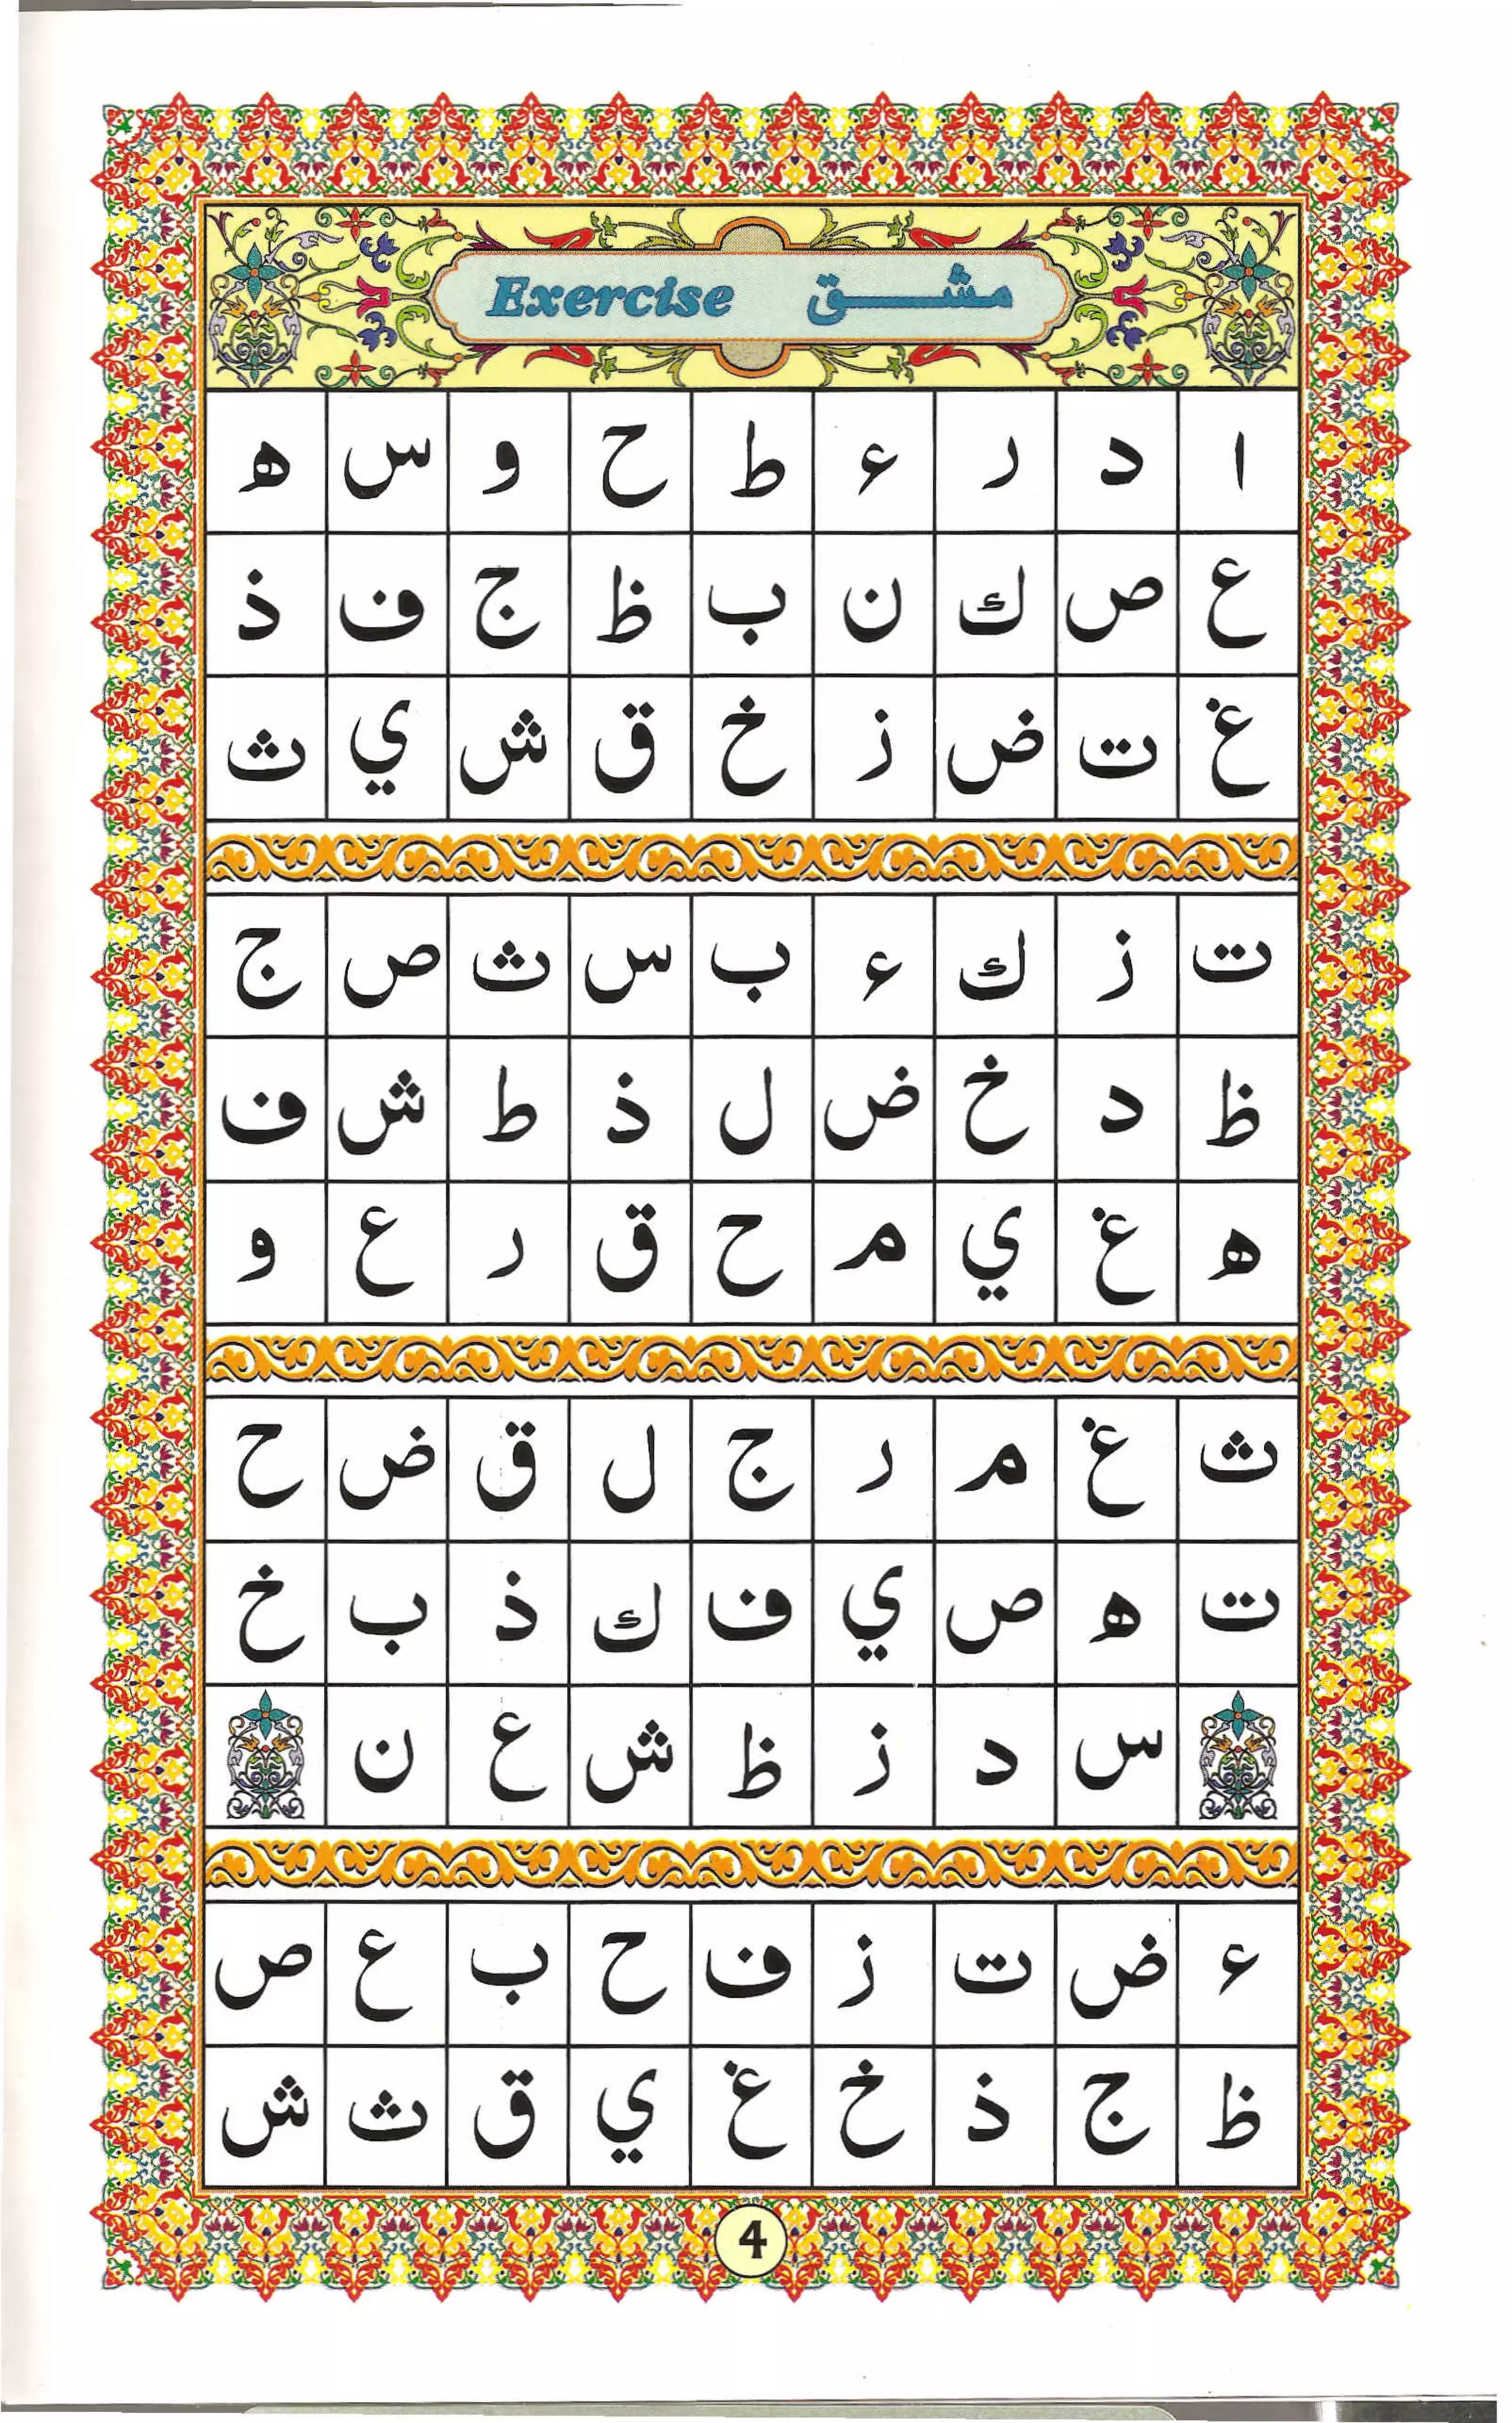 Exercise مشق
ا د ر ء ط ح و س ه
ع ص ك ن ب ظ ج ف ذ
غ ت ض ز خ ق ش ي ث
ت ز ك ء ب س ث ص ج
ظ د خ ض ل ذ ط ش ف
ه غ ي م ح ق ر ع و
ث غ م ر ج ل ق ض ح
ت ه ص ي ف ك ذ ب خ
س د ز ظ ش ع ن
ء ض ت ز ف ح ب ع ص
ظ ج ذ خ غ ي ق ث ش
4